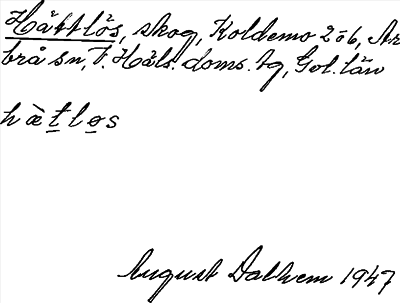 Hättlös, skog, Koldemo 2 o 6, Ar
brå sn, V. Häls. doms. tg, Gvl. län
hætløs
August Dalhem 1947